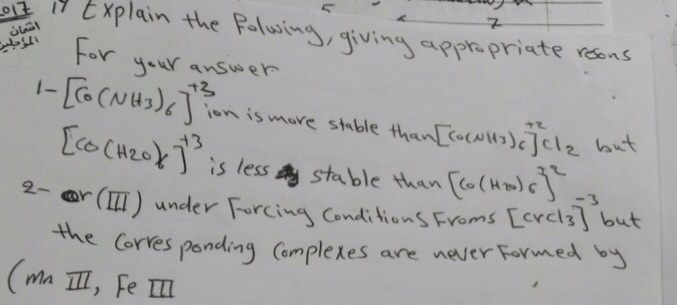 2017 1) Explain the Folwing, giving appropriate resons
امتحان المؤجلين
For your answer
1- [Co(NH3)6]+3 ion is more stable than [Co(NH3)6]+2 Cl2 but
[Co(H2O)6]+3 is less stable than [Co(H2O)6]+2
2- cr(III) under Forcing Conditions Froms [crcl3]-3 but
the Corresponding Complexes are never Formed by
(Mn III, Fe III
Z